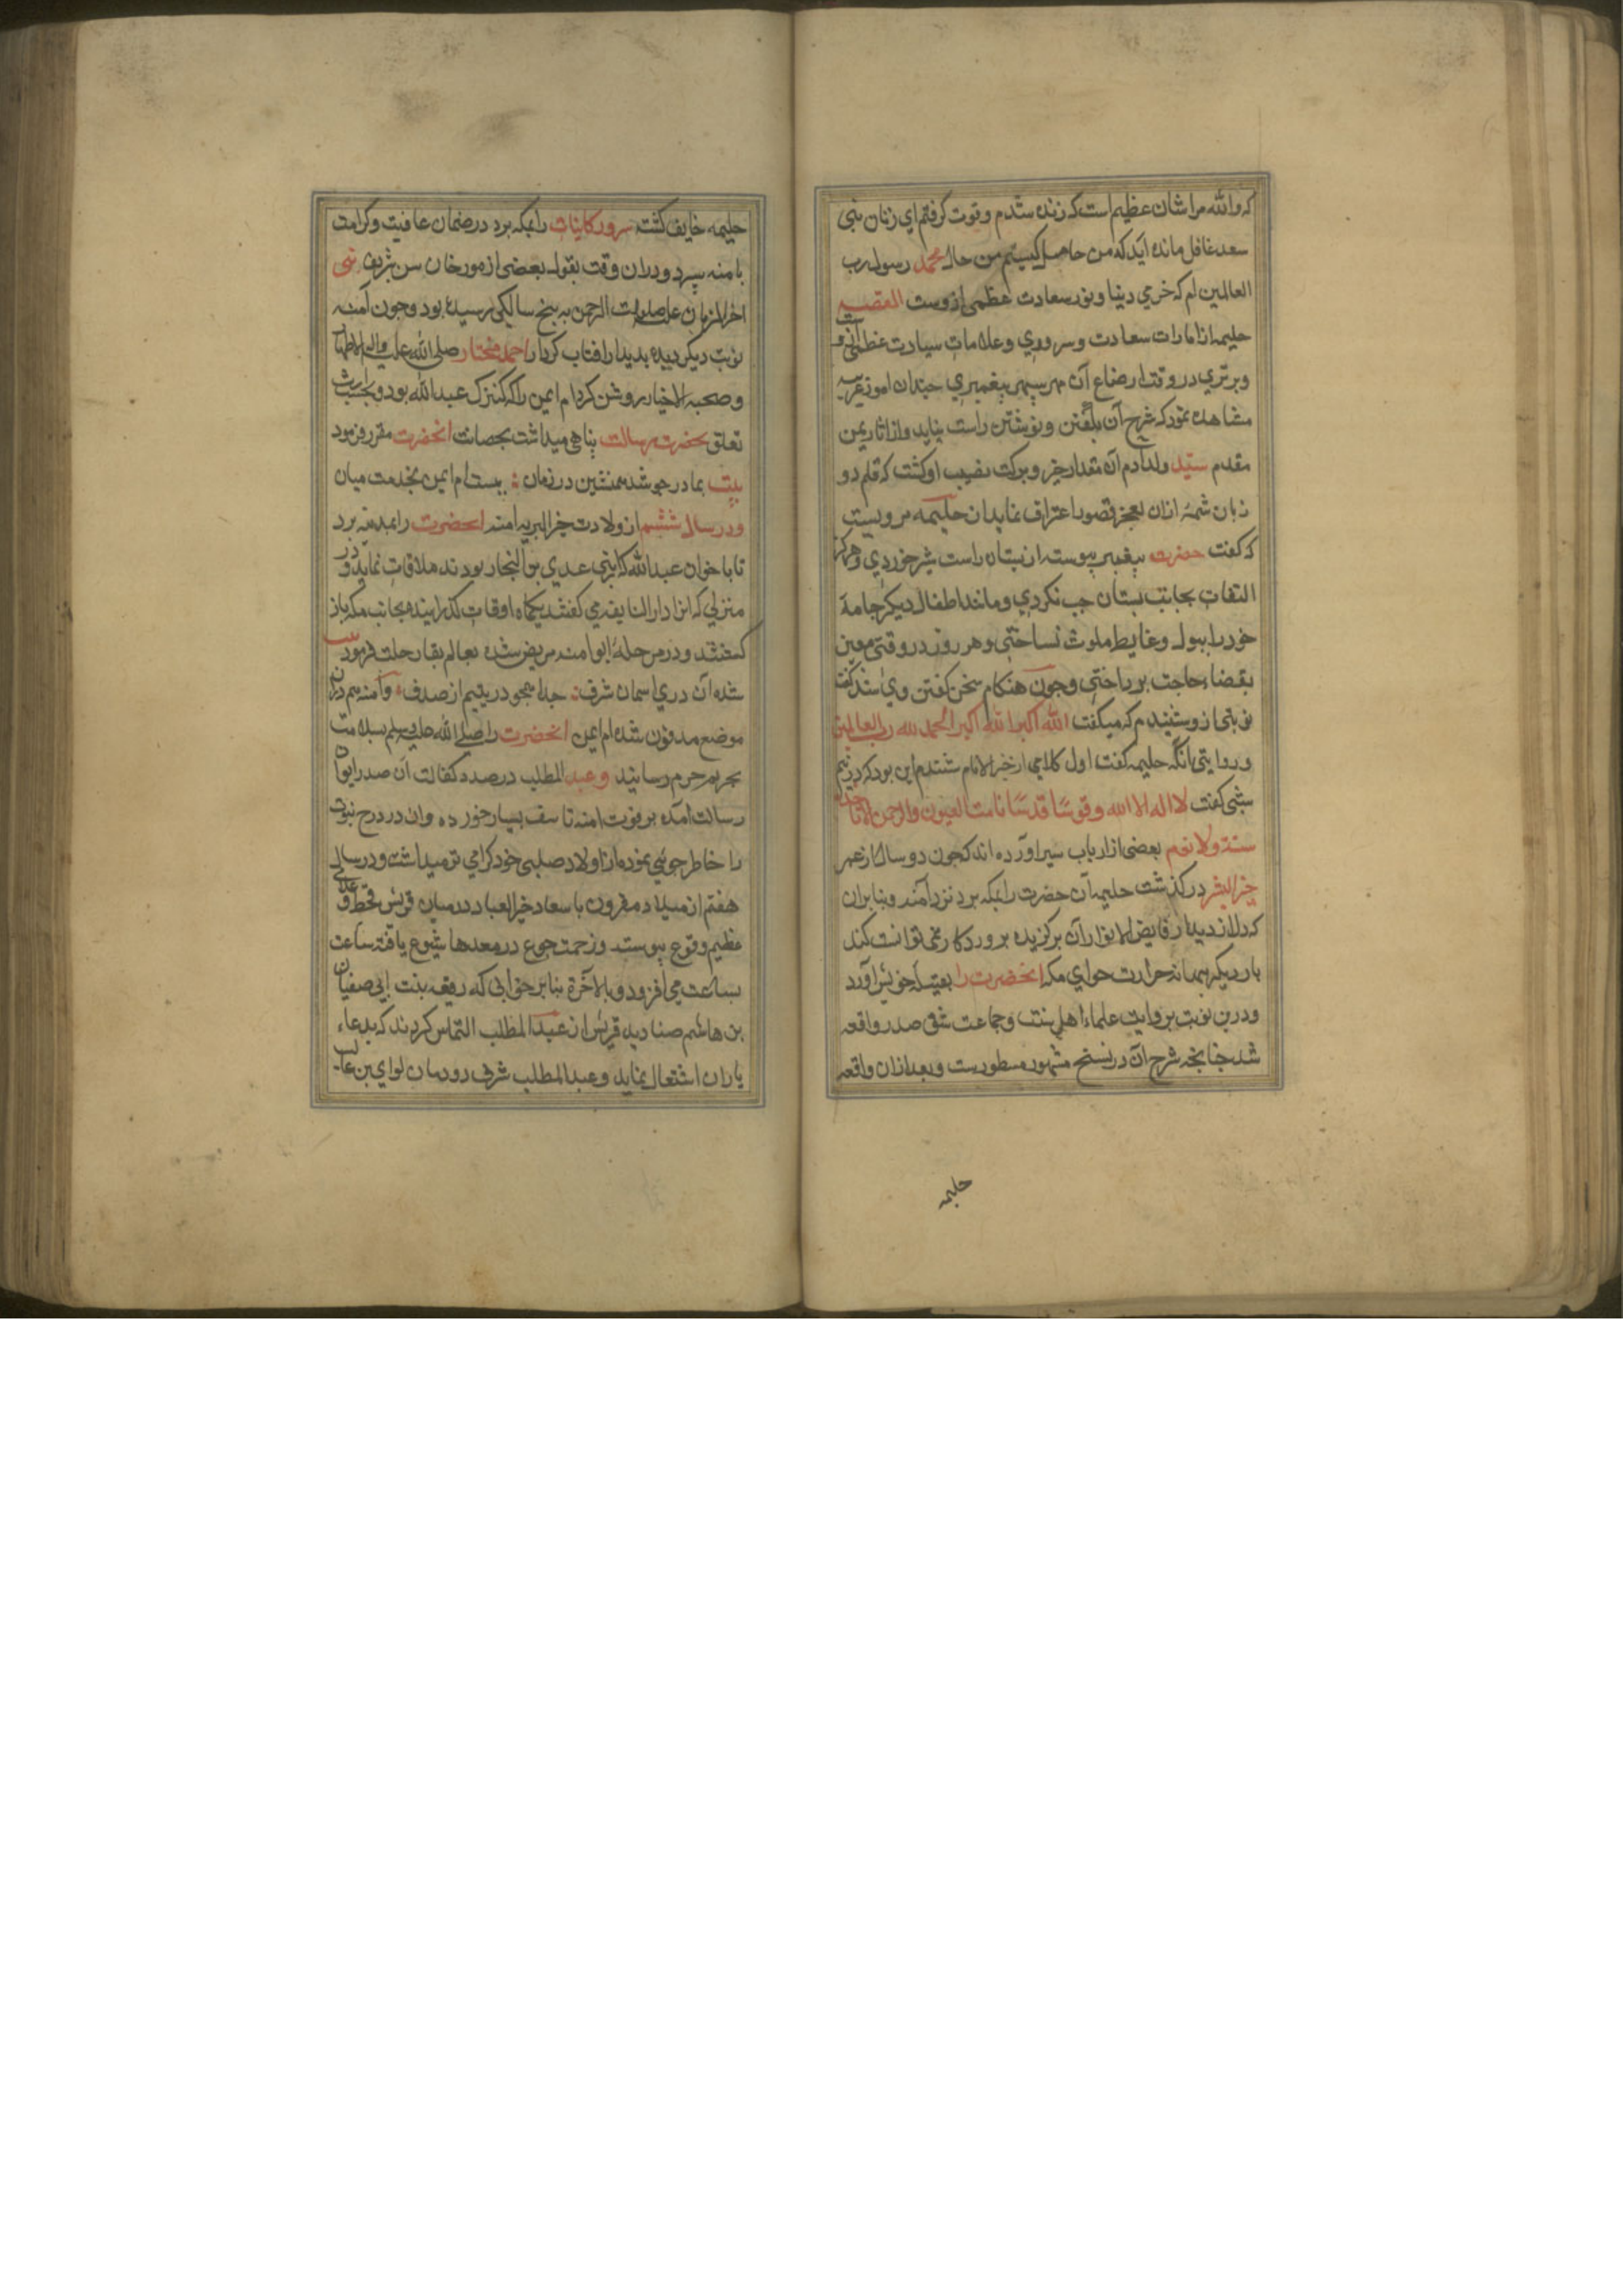 که والله مرا شان عظیم است که زنده شدم و قوت گرفتم ای زنان بنی
سعد غافل مانده اید که من حامل کیستم من حال محمد رسول رب
العالمین ام که خرمی دینا و نور سعادت عظمی ازوست القصه
حلیمه از امارات سعادت و سروری و علامات سیادت عظمی
و برتری در وقت ارضاع آن مهر سپهر پیغمبری چندان امور غریبه
مشاهده نمود که شرح آن بگفتن و نوشتن راست نیاید و از اثار یمن
مقدم سید ولد آدم آن مقدار خیر و برکت نصیب او کشت که قلم دو
زبان شمهٔ ازان بعجز و قصور اعتراف نماید از حلیمه مرویست
که کفت حضرت پیغمبر پیوسته از پستان راست شیر خوردی و هرکز
التفات بجانب پستان چپ نکردی و مانند اطفال دیکر جامهٔ
خود را ببول و غایط ملوث نساختی و هر روز در وقتی معین
بقضاء حاجت پرداختی و چون هنکام سخن کفتن وی شد
نوبتی ازو شنیدم که میکفت الله اکبر الله اکبر الحمد لله رب العالمین
و روایتی آنکه حلیمه کفت اول کلامی از خیر الانام شنیدم این بود که در نیم
شبی کفت لا اله الا الله و قدوسا قدسا نامت العیون و الرحمن لا تاخذه
سنة ولا نوم بعضی از ارباب سیر اورده اند که چون دو سال از عمر
خیر البشر در کذشت حلیمه آن حضرت را بمکه برد نزد آمنه و بنابران
که دل از دیدار فایض الانوار آن برکزیده پروردکار نمی توانست کند
بار دیکر بهمانه حرارت هوای مکه انحضرت را بقبیله خویش آورد
و درین نوبت بروایت علماء اهل سنت و جماعت شق صدر واقعه
شد چنانچه شرح آن در نسخ مشهوره مسطورست و بعد ازان واقعه
حلیمه
حلیمه خایف کشته سرور کاینات را بمکه برد در ضمان عافیت و کرامت
بامنه سپرد و دران وقت بقول بعضی از مورخان سن شریف نبی
اخر الزمان علیه صلوات الرحمن به پنج سالکی رسیده بود و چون آمنه
نوبت دیکر دیده بدیدار افتاب کردار احمد مختار صلی الله علیه واله الاطهار
و صحبه الاخیار روشن کرد ام ایمن را که کنیزک عبد الله بود و بحسب ارث
تعلق بحضرت رسالت پناهی میداشت بحضانت انحضرت مقرر فرمود
بیت بمادر چو شد همنشین در زمان : ببست ام ایمن بخدمت میان
و در سال ششم از ولادت خیر البریه امنه انحضرت را بمدینه برد
تا با خوان عبد الله که از بنی عدی بن النجار بودند ملاقات نماید و در
منزلی که انرا دار النابغه می کفتند یکماه اوقات کذرانیده بجانب مکه باز
کشتند و در مرحلهٔ ابوا امنه مریض شده بعالم بقا رحلت فرمود بیت
شده آن دری اسمان شرف : جدا همچو در یتیم از صدف : و آمنه هم دران
موضع مدفون شده ام ایمن انحضرت را صلی الله علیه وسلم بسلامت
بحریم حرم رسانید و عبد المطلب درصدد کفالت آن صدر ایوان
رسالت آمده بر فوت امنه تاسف بسیار خورده و ان در درج نبوت
را خاطر جوئی نموده از اولاد صلبی خود کرامی تر میداشت و در سال
هفتم از میلاد مقرون باسعاد خیر العباد در میان قریش قحط و غلای
عظیم وقوع پیوست و زحمت جوع در معدها شیوع یافته ساعت
بساعت می افزود و بالآخرة بنابر خوابی که رقیقه بنت ابی صفیان
بن هاشم صنادید قریش از عبد المطلب التماس کردند که بدعاء
باران اشتغال نماید و عبد المطلب شرف دودمان لوای بن غالب